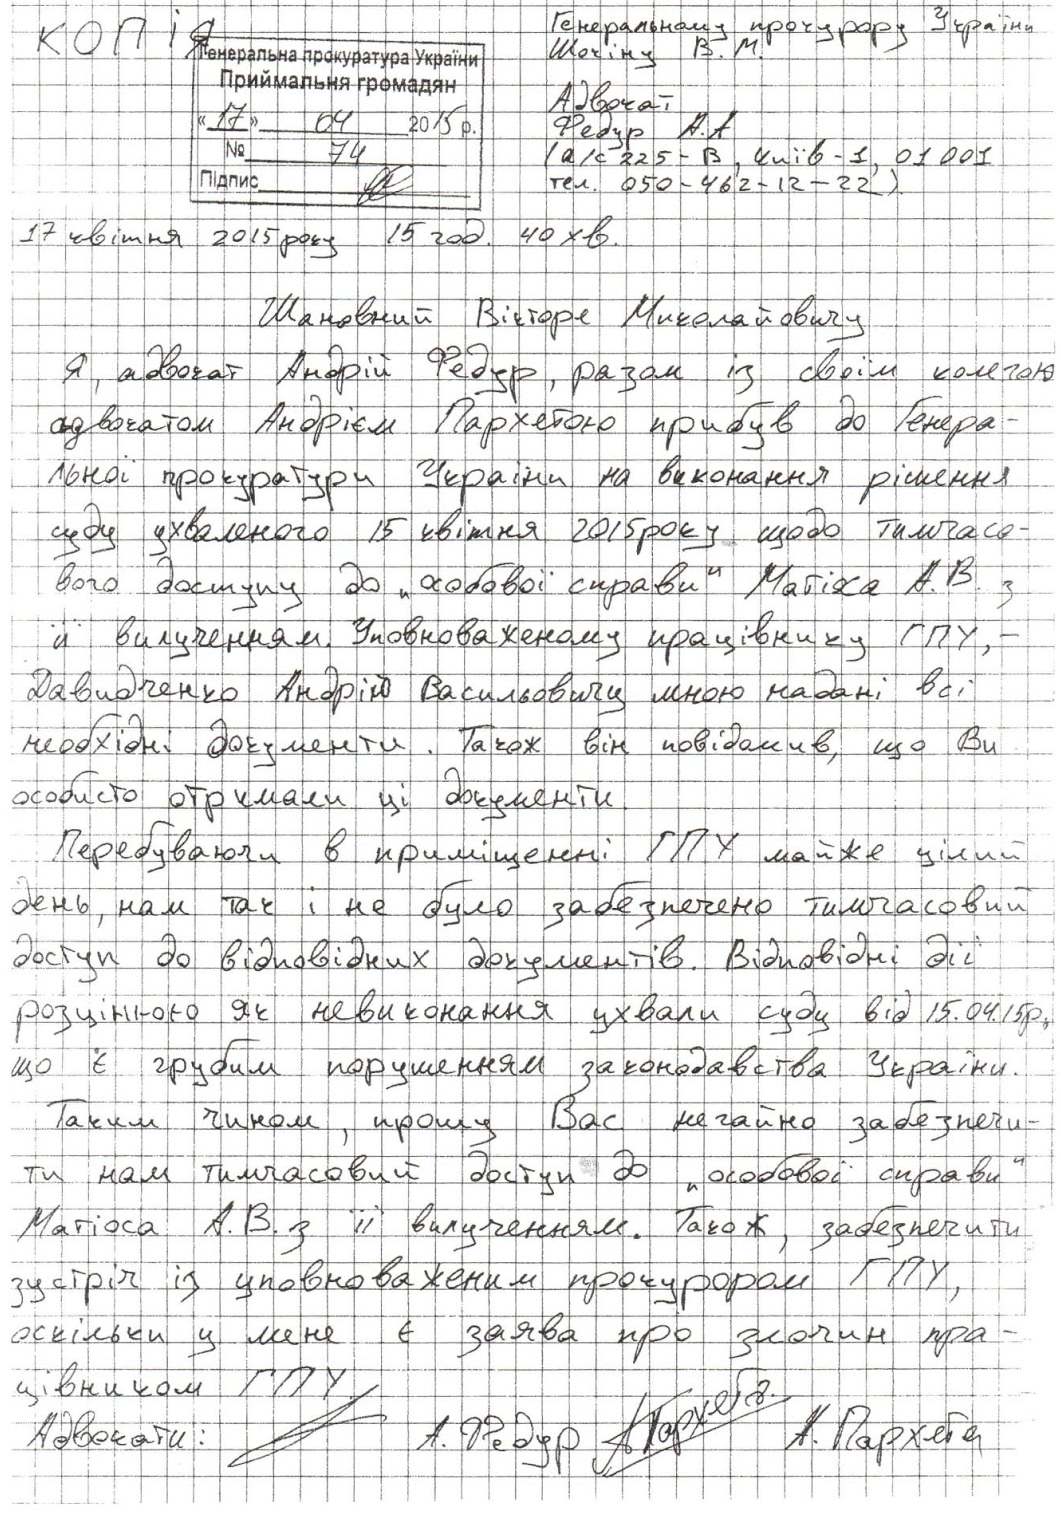 КОПІЯ
Генеральна прокуратура України
Приймальня громадян
«17» 04 2015 р.
№ 74
Підпис
Генеральному прокурору України
Шокіну В. М.
Адвокат
Федур А.А
(а/с 225-В, Київ-1, 01001
тел. 050-462-12-22)
17 квітня 2015 року 15 год. 40 хв.
Шановний Вікторе Миколайовичу
Я, адвокат Андрій Федур, разом із своїм колегою
адвокатом Андрієм Пархетою прибув до Генера-
льної прокуратури України на виконання рішення
суду ухваленого 15 квітня 2015 року щодо тимчасо-
вого доступу до „особової справи" Матіоса А.В. з
її вилученням. Уповноваженому працівнику ГПУ, -
Давидченко Андрію Васильовичу мною надані всі
необхідні документи. Також він повідомив, що Ви
особисто отримали ці документи.
Перебуваючи в приміщенні ГПУ майже цілий
день, нам так і не було забезпечено тимчасовий
доступ до відповідних документів. Відповідні дії
розцінюю як невиконання ухвали суду від 15.04.15р,
що є грубим порушенням законодавства України.
Таким чином, прошу Вас негайно забезпечи-
ти нам тимчасовий доступ до „особової справи"
Матіоса А.В. з її вилученням. Також, забезпечити
зустріч із уповноваженим прокурором ГПУ,
оскільки у мене є заява про злочин пра-
цівником ГПУ.
Адвокати: А. Федур Пархета А. Пархета